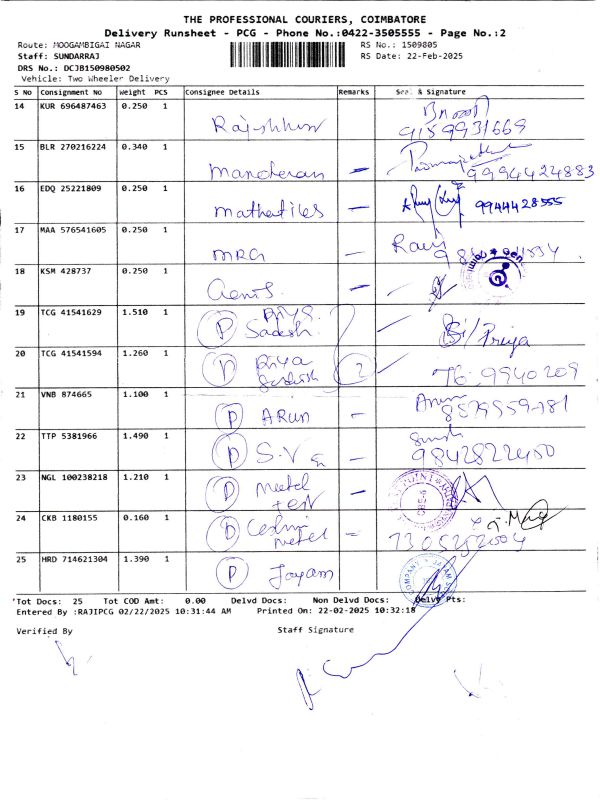 THE PROFESSIONAL COURIERS, COIMBATORE
Delivery Runsheet - PCG - Phone No.:0422-3505555 - Page No.:2
Route: MOOGAMBIGAI NAGAR
RS No.: 1509805
Staff: SUNDARRAJ
RS Date: 22-Feb-2025
DRS No.: DCJB150980502
Vehicle: Two Wheeler Delivery
S No Consignment No Weight PCS Consignee Details Remarks Seal & Signature
14 KUR 696487463 0.250 1
9159931669
15 BLR 270216224 0.340 1 Manoheran
9994424883
16 EDQ 25221809 0.250 1 9944428555
17 MAA 576541605 0.250 1 MRG Ravi
18 KSM 428737 0.250 1
19 TCG 41541629 1.510 1 P Priya Sadesh
Priya
20 TCG 41541594 1.260 1 Priya 2
76 9940209
21 VNB 874665 1.100 1 P ARUN
22 TTP 5381966 1.490 1 P S.V
9842822400
23 NGL 100238218 1.210 1 P Meetel
24 CKB 1180155 0.160 1
25 HRD 714621304 1.390 1 P Jayam
Tot Docs: 25 Tot COD Amt: 0.00 Delvd Docs: Non Delvd Docs: Delvd Pts:
Entered By :RAJIPCG 02/22/2025 10:31:44 AM Printed On: 22-02-2025 10:32:18
Verified By
Staff Signature